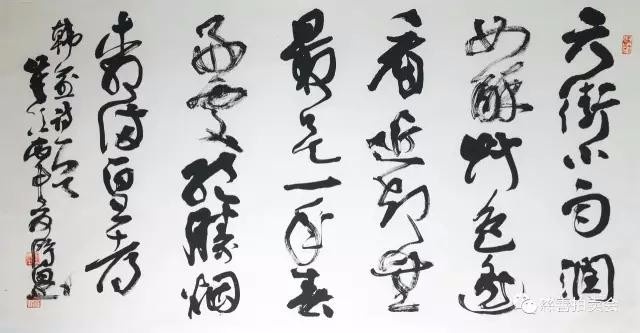 天街小雨潤
如酥草色遥
看近却無
最是一年春
好處絶勝烟
柳滿皇都
韓愈詩一首
丙申
善拍卖会